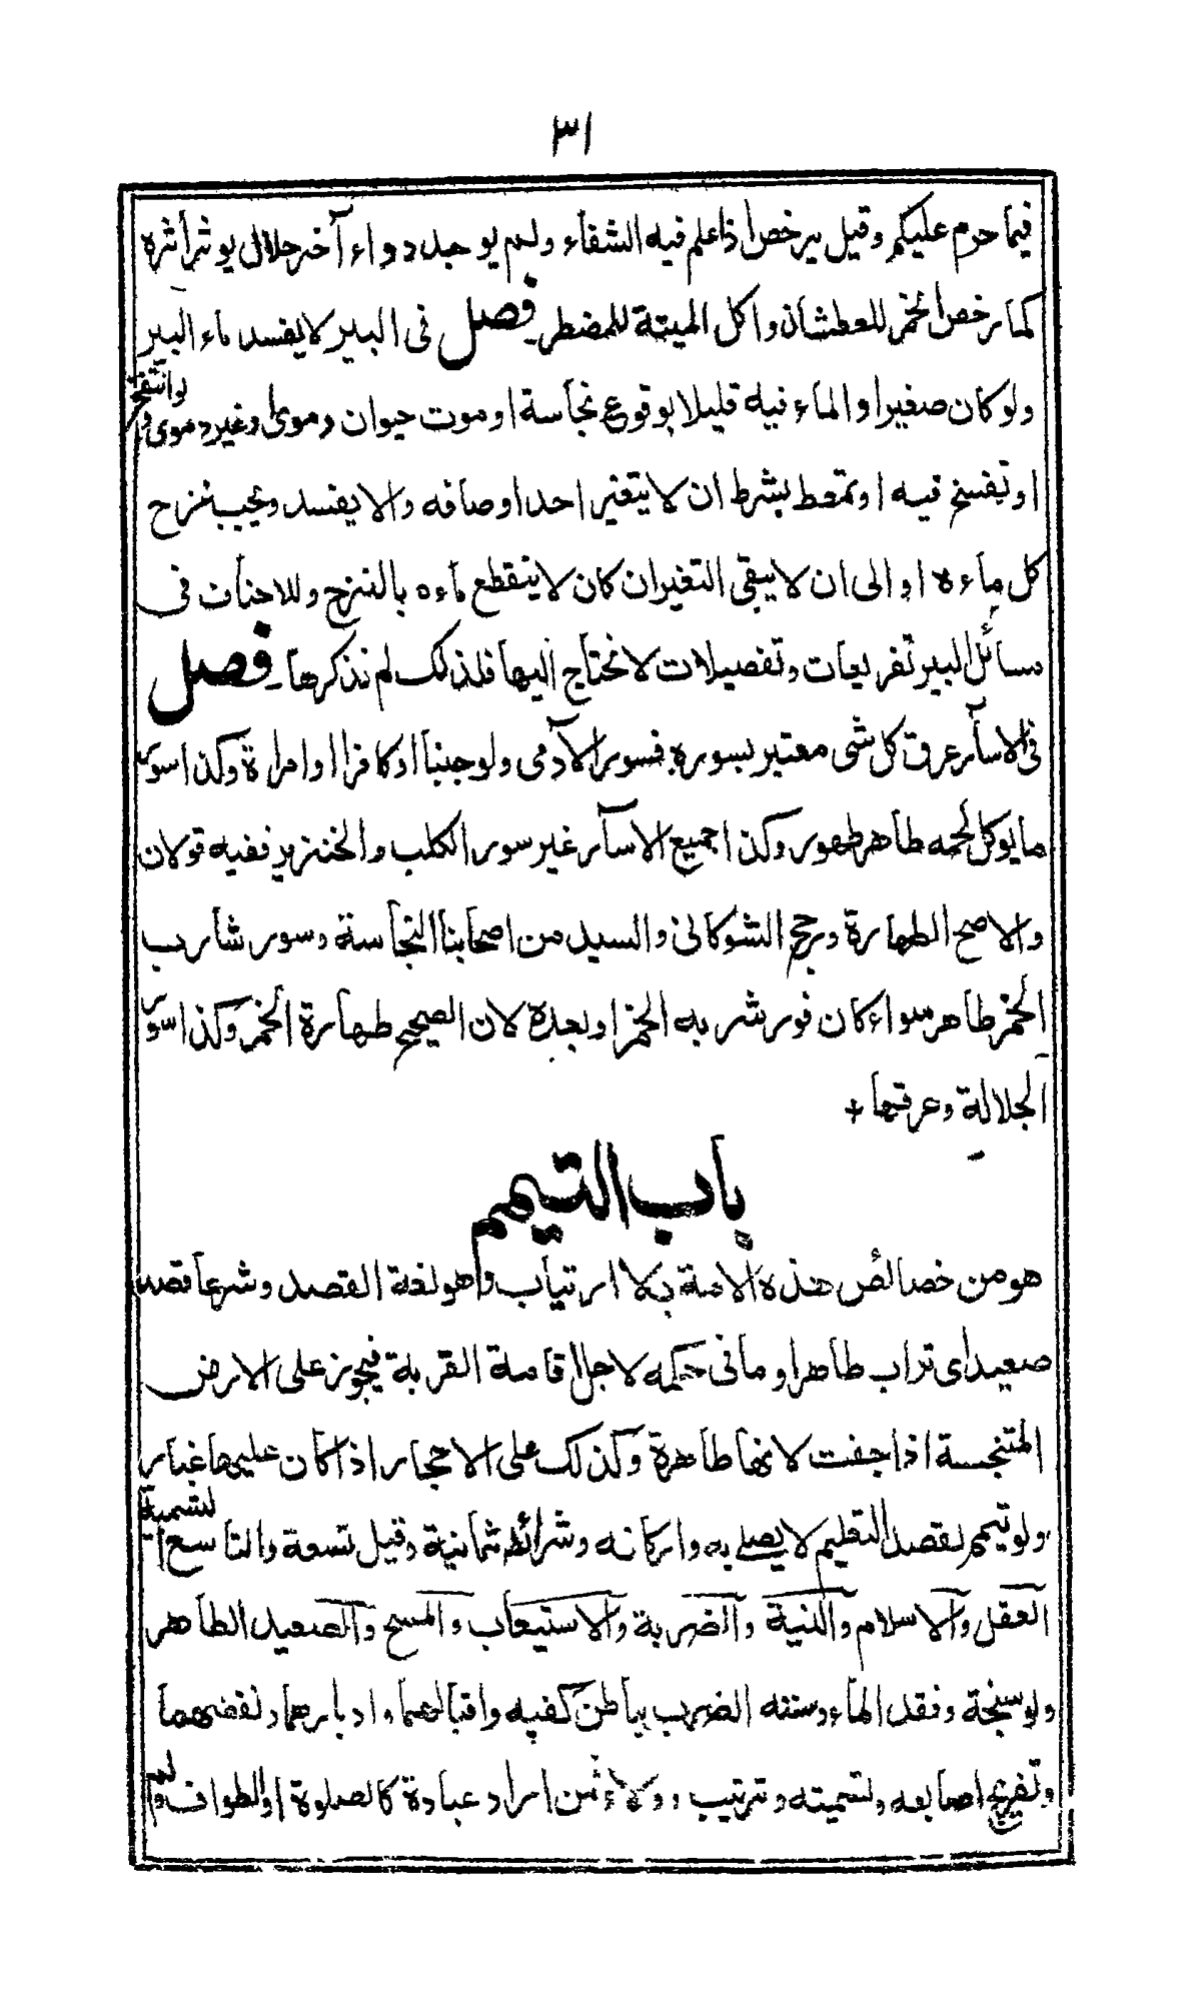 ٣١
فيما حرم عليكم وقيل يرخص اذا علم فيه الشفاء ولم يوجد دواء آخر حلال يوثر أثره
كما رخص الخمر للعطشان واكل الميتة للمضطر۔ فصل فى البير لا يفسد ماء البير
ولو كان صغيرا و الماء فيه قليلا بوقوع نجاسة او موت حيوان دموى وغير دموى ولو انتفخ
او تفسخ فيه او تمعط بشرط ان لا يتغير احد اوصافه والا يفسد ويجب نزح
كل ماءه او الى ان لا يبقى التغير ان كان لا ينقطع ماءه بالنزح وللاحناف فى
مسائل البير تفريعات وتفصيلات لا نحتاج اليها فلذلك لم نذكرها۔ فصل
فى الاسآر عرق كل شى معتبر بسوره فسور الآدمى ولو جنبا او كافرا او امراة وكذا سور
ما يوكل لحمه طاهر طهور وكذا جميع الاسآر غير سور الكلب والخنزير ففيه قولان
والاصح الطهارة ورجح الشوكانى والسيد من اصحابنا النجاسة وسور شارب
الخمر طاهر سواء كان فور شربه الخمر او بعده لان الصحيح طهارة الخمر وكذا سور
الجلالة وعرقها +
باب التيمم
هو من خصائص هذه الامة بلا ارتياب وهو لغة القصد وشرعا قصد
صعيد اى تراب طاهر او ما فى حكمه لاجل اقامة القربة فيجوز على الارض
المتنجسة اذا جفت لانها طاهرة وكذلك على الاحجار اذا كان عليها غبار
ولو تيمم لقصد التعليم لا يصلے به واركانه وشرائطه ثمانية وقيل تسعة والتاسع التسمية
العقل والاسلام والنية والضربة والاستيعاب والمسح والصعيد الطاهر
ولو سبخة وفقد الماء وسننه الضرب بباطن كفيه واقبالهما وادبارهما ونفضهما
وتفريج اصابعه وتسميته وترتيب وولاء فمن اراد عبادة كالصلوة او الطواف ولم